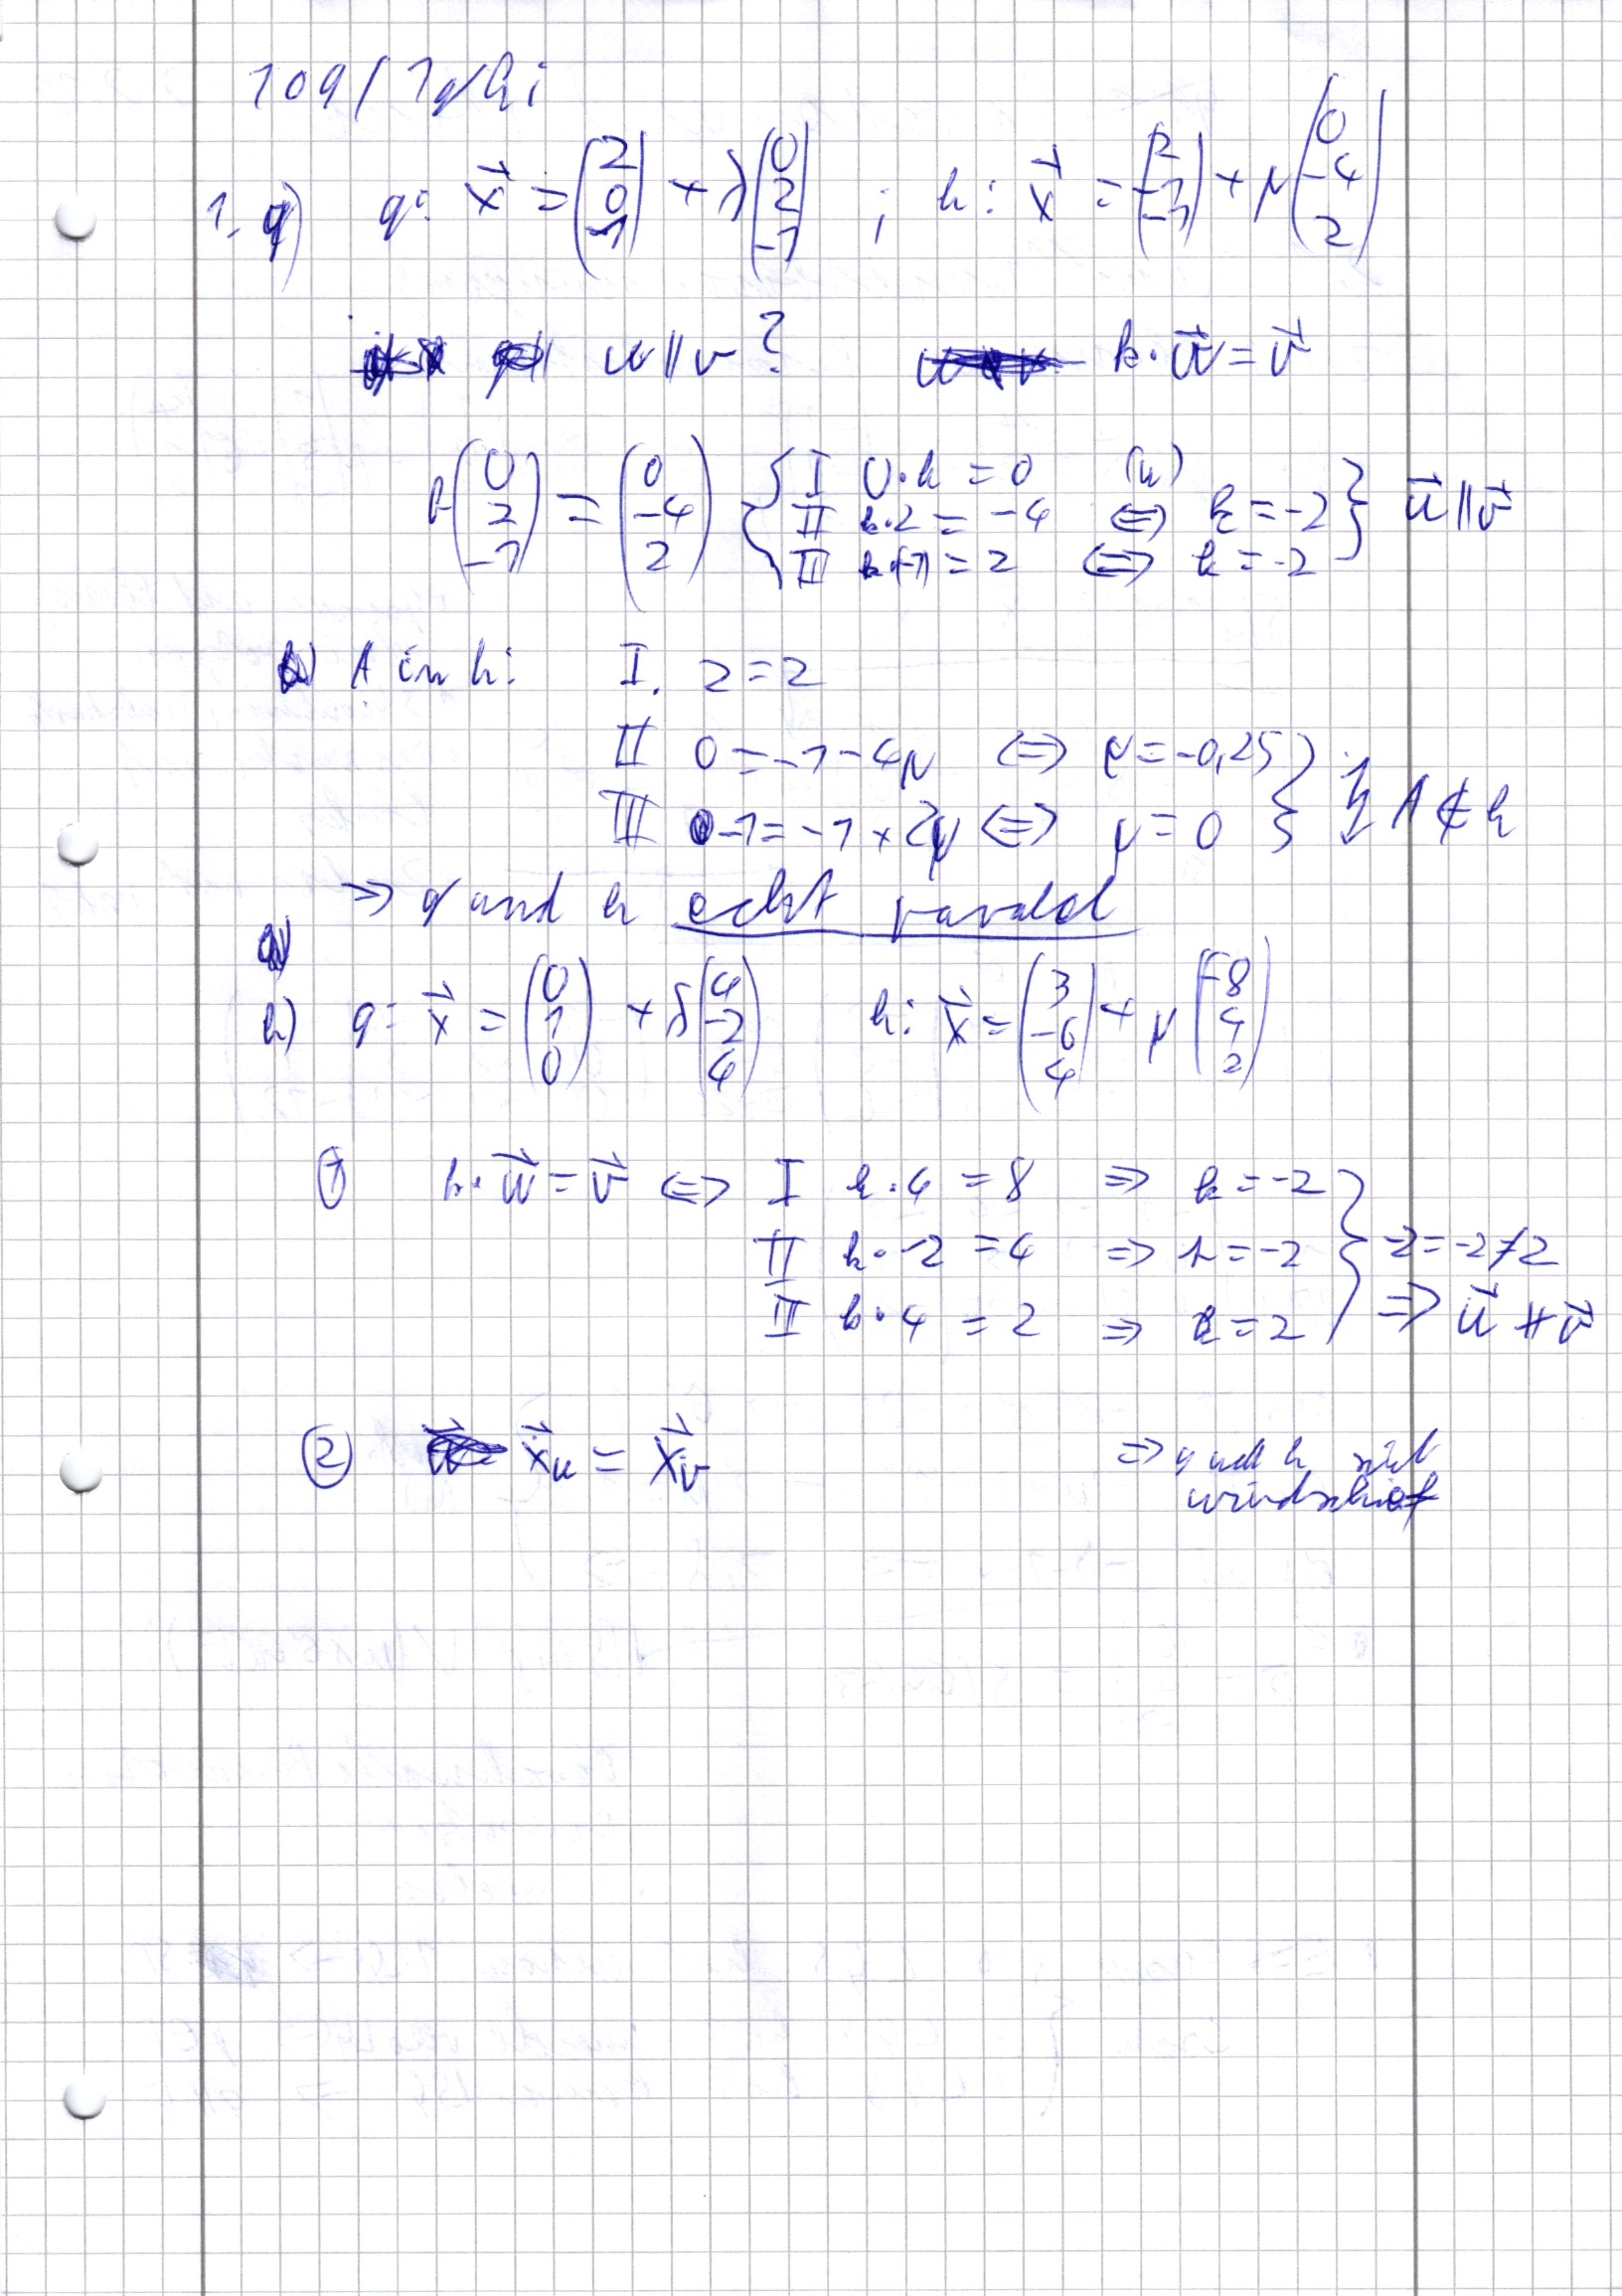 109/1ghi
1. g) g: x⃗ = (2 0 -1) + λ (0 2 -1) ; h: x⃗ = (2 -1 -1) + μ (0 -4 2)
u ∥ v ? k · u⃗ = v⃗
k (0 2 -1) = (0 -4 2) { I 0·k = 0 (w) II k·2 = -4 ⇔ k = -2 III k·(-1) = 2 ⇔ k = -2 } u⃗ ∥ v⃗
A in h: I. 2 = 2
II 0 = -1 - 4μ ⇔ μ = -0,25
III -1 = -1 + 2μ ⇔ μ = 0 } ↯ A ∉ h
⇒ g und h echt parallel
h) g: x⃗ = (0 1 0) + λ (4 -2 4) h: x⃗ = (3 -6 4) + μ (-8 4 2)
① k · u⃗ = v⃗ ⇔ I k · 4 = 8 ⇒ k = -2
II k · -2 = 4 ⇒ k = -2 } -2 = -2 ≠ 2
III k · 4 = 2 ⇒ k = 2 ⇒ u⃗ ∦ v⃗
② x⃗u = x⃗v ⇒ g und h sind
windschief